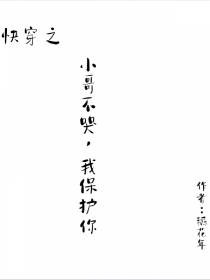 快穿之
小哥不哭，我保护你
作者：
花年